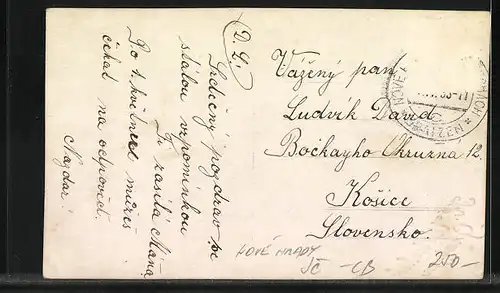 (D. L.)
Srdečný pozdrav se
stálou vzpomínkou
Ti zasílá Máňa
Po 1. květnu můžeš
čekat na odpověď.
Nazdar!
Vážený pan
Ludvík David
Bočkayho Okružná 12.
Košice
Slovensko.
NOVÉ
NOVÉ HRADY
JČ - CB
250-